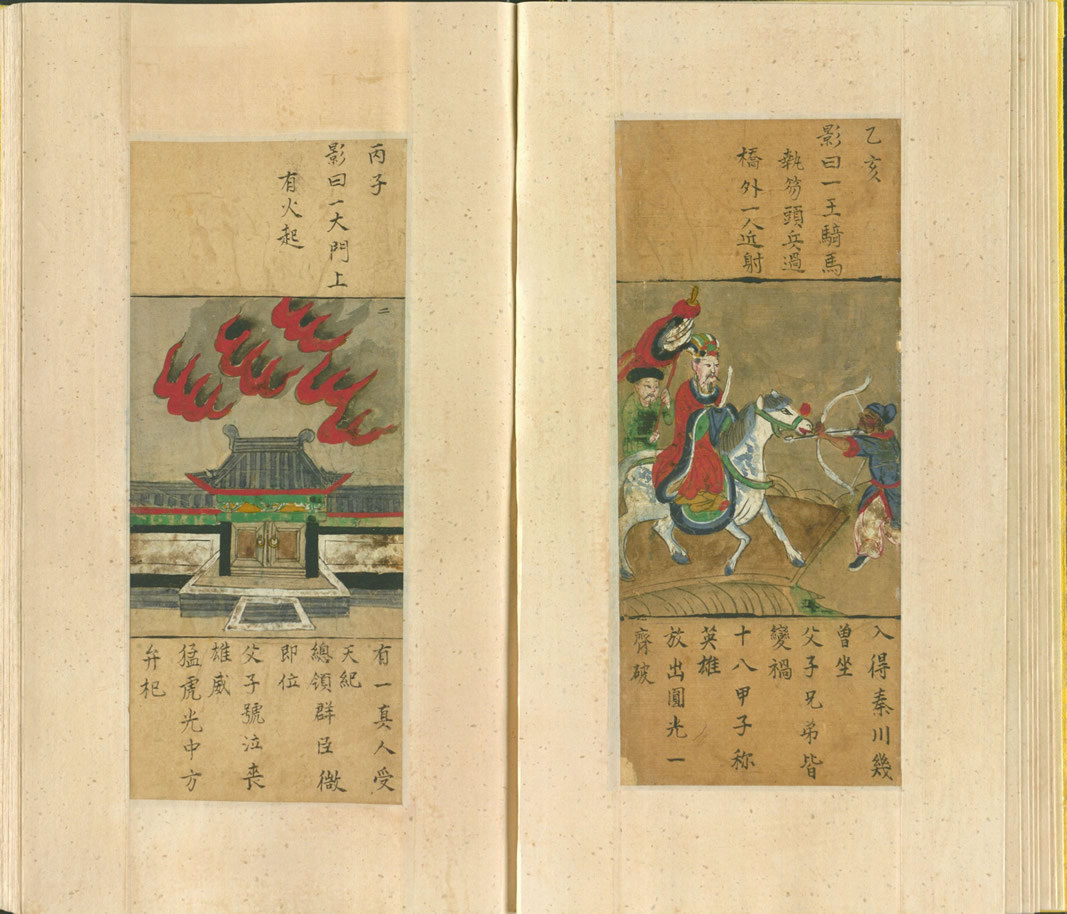 乙亥
影曰一王騎馬
執笏頭兵過
橋外一人近射
入得秦川幾
曾坐
父子兄弟皆
變禍
十八甲子称
英雄
放出圓光一
齊破
丙子
影曰一大門上
有火起
二
有一真人受
天紀
總領群臣微
即位
父子號泣喪
雄威
猛虎光中方
弁杞